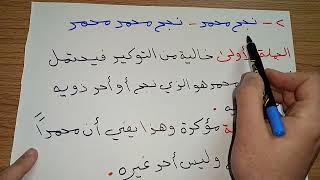 ٢ - نجح محمد - نجح محمد محمد
الجملة الأولى خالية من التوكير فيحتمل
محمد هو الذي نجح أو أحد ذويه
مؤكدة وهذا ينفي أن محمداً
وليس أحد غيره.